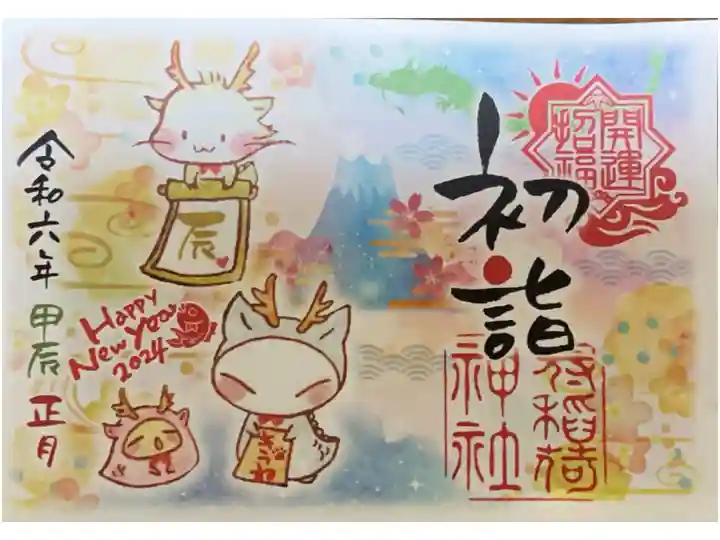 開運
招福
初詣
稻荷
神社
辰
Happy
New Year
2024
令和六年 甲辰 正月